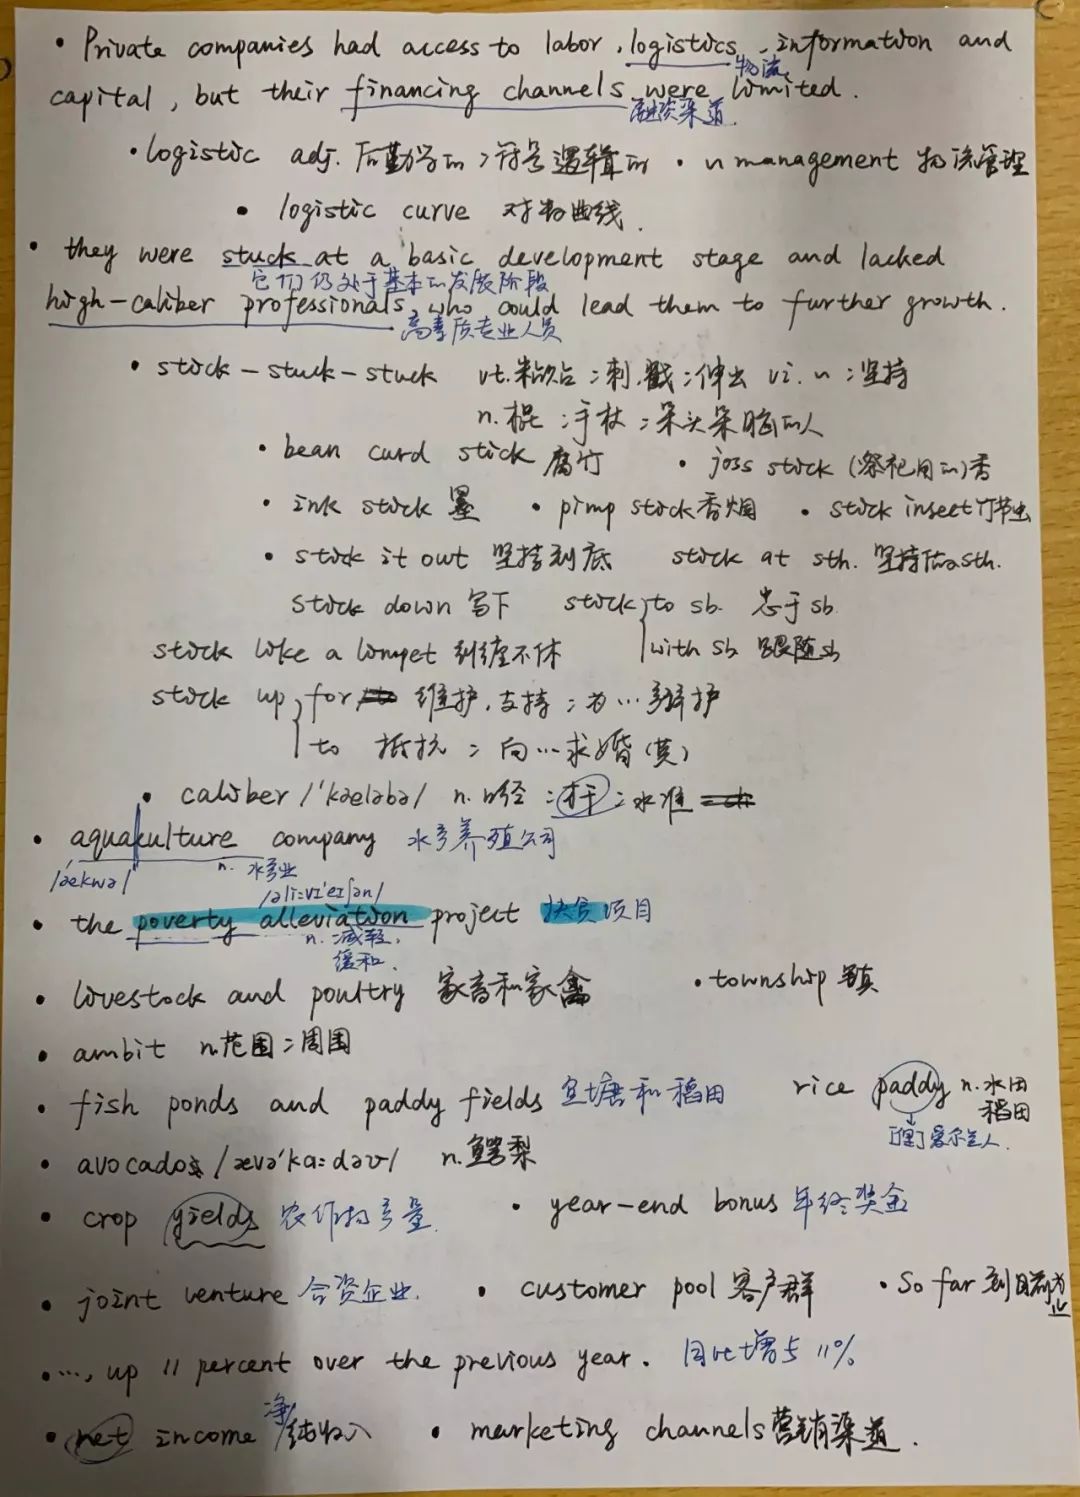 • Private companies had access to labor, logistics, information and
物流
capital, but their financing channels were limited.
融资渠道
• logistic adj. 后勤学的；符号逻辑的 • ~ management 物流管理
• logistic curve 对数曲线
• they were stuck at a basic development stage and lacked
它们仍处于基本的发展阶段
high-caliber professionals, who could lead them to further growth.
高素质专业人员
• stick - stuck - stuck vt. 粘贴；刺，戳；伸出 vi. ~；坚持
n. 棍；手杖；呆头呆脑的人
• bean curd stick 腐竹 • joss stick (祭祀用的)香
• ink stick 墨 • pimp stick 香烟 • stick insect 竹节虫
• stick it out 坚持到底 stick at sth. 坚持做sth.
stick down 写下 stick to sb. 忠于sb.
with sb 跟随sb
stick like a limpet 纠缠不休
stick up for 维护，支持；为…辩护
to 抵抗；向…求婚(英)
• caliber /'kæləbə/ n. 口径；才干；水准
• aquakulture company 水产养殖公司
/ækwə/ n. 水产业
/əliːvɪ'eɪʃən/
• the poverty alleviation project 扶贫项目
n. 减轻，
缓和.
• livestock and poultry 家畜和家禽 • township 镇
• ambit n. 范围；周围
• fish ponds and paddy fields 鱼塘和稻田 rice paddy n. 水田
稻田
[俚]爱尔兰人.
• avocados /ævə'kɑːdəʊ/ n. 鳄梨
• crop yields 农作物产量. • year-end bonus 年终奖金
• joint venture 合资企业. • customer pool 客户群 • So far 到目前为止
• …, up 11 percent over the previous year. 同比增长11%
• net income 净/纯收入 • marketing channels 营销渠道.